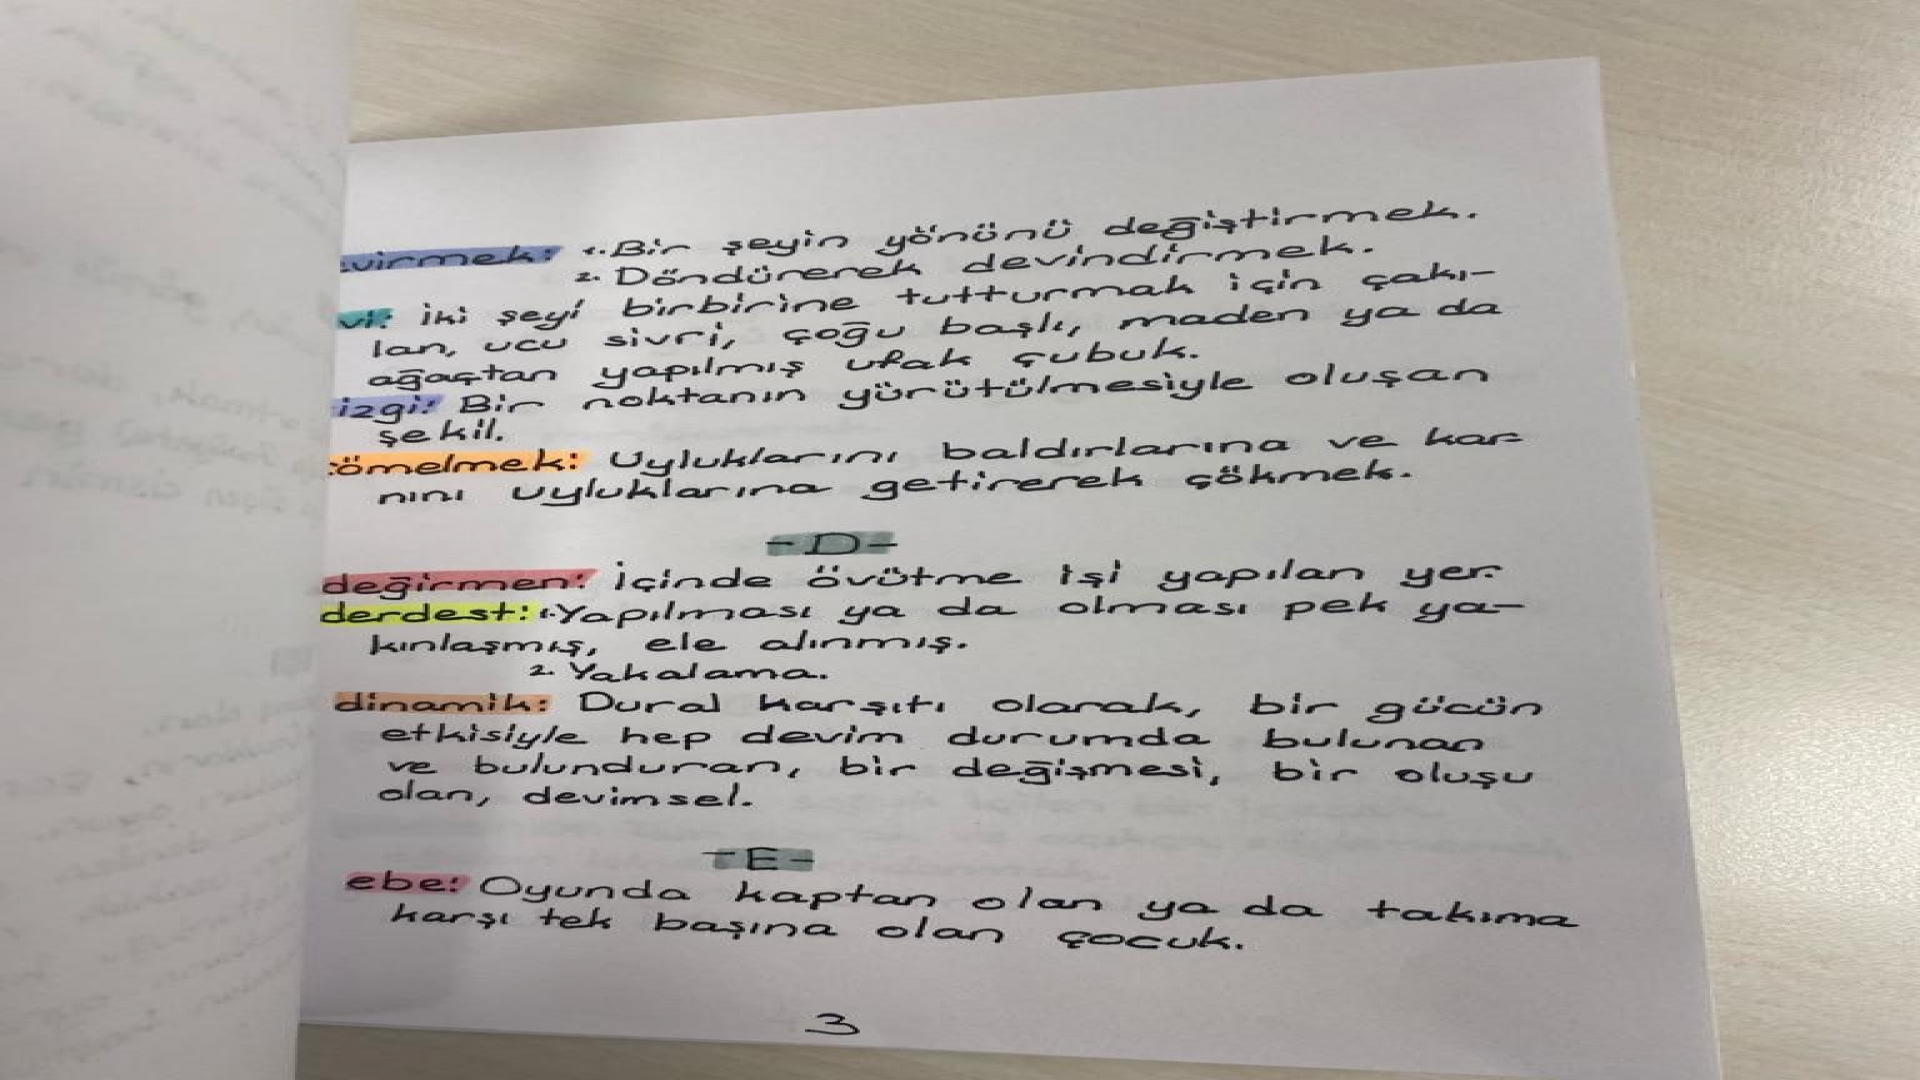 virmek: 1. Bir şeyin yönünü değiştirmek.
2. Döndürerek devindirmek.
vi: İki şeyi birbirine tutturmak için çakı-
lan, ucu sivri, çoğu başlı, maden ya da
ağaçtan yapılmış ufak çubuk.
izgi: Bir noktanın yürütülmesiyle oluşan
şekil.
ömelmek: Uyluklarını baldırlarına ve kar-
nını uyluklarına getirerek çökmek.
-D-
değirmen: İçinde övütme işi yapılan yer.
derdest: 1. Yapılması ya da olması pek ya-
kınlaşmış, ele alınmış.
2. Yakalama.
dinamik: Dural karşıtı olarak, bir gücün
etkisiyle hep devim durumda bulunan
ve bulunduran, bir değişmesi, bir oluşu
olan, devimsel.
-E-
ebe: Oyunda kaptan olan ya da takıma
karşı tek başına olan çocuk.
3